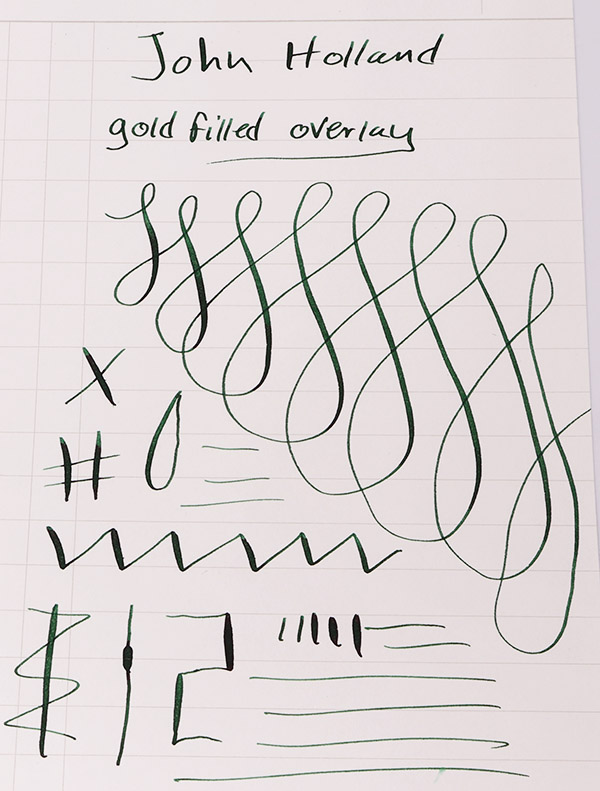 John Holland
gold filled overlay
X
#